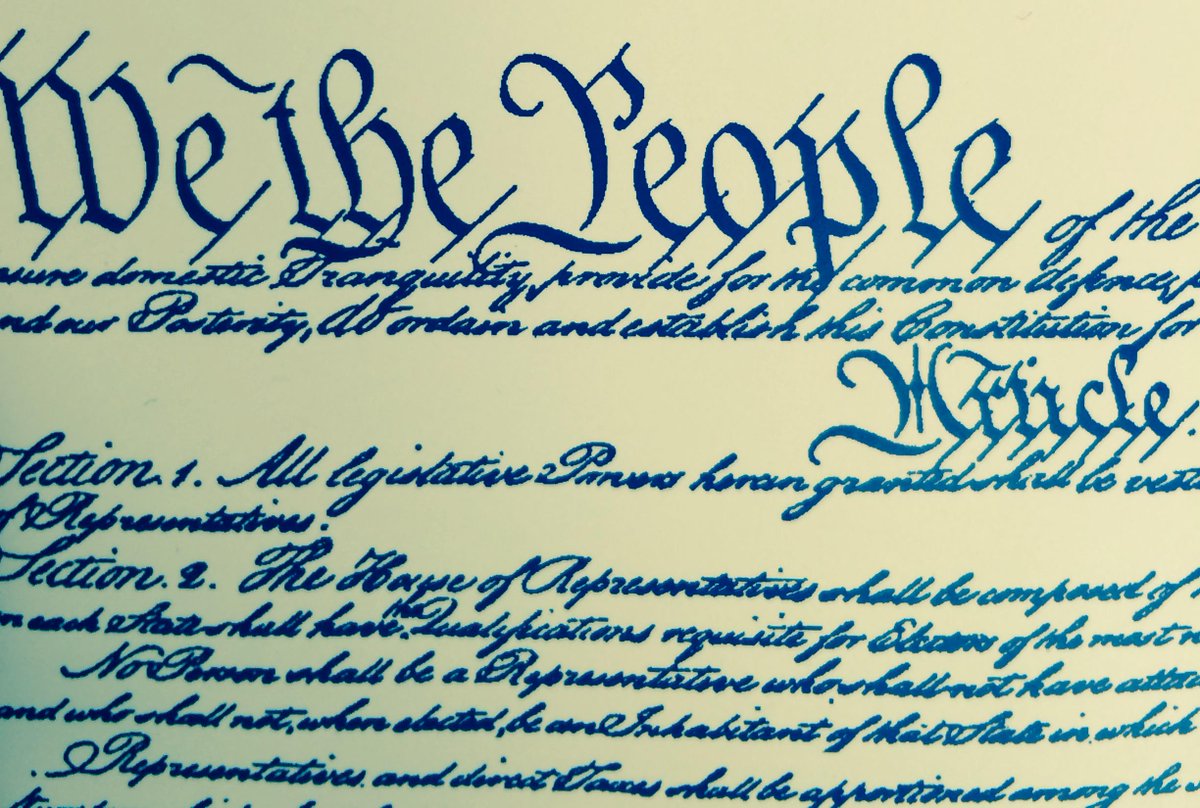 We the People of the
sure domestic Tranquility, provide for the common defence,
nd our Posterity, do ordain and establish this Constitution for
Article.
Section. 1. All legislative Powers herein granted shall be vest
of Representatives.
Section. 2. The House of Representatives shall be composed of
n each State shall have the Qualifications requisite for Electors of the most n
No Person shall be a Representative who shall not have attai
and who shall not, when elected, be an Inhabitant of that State in which
Representatives and direct Taxes shall be apportioned among the